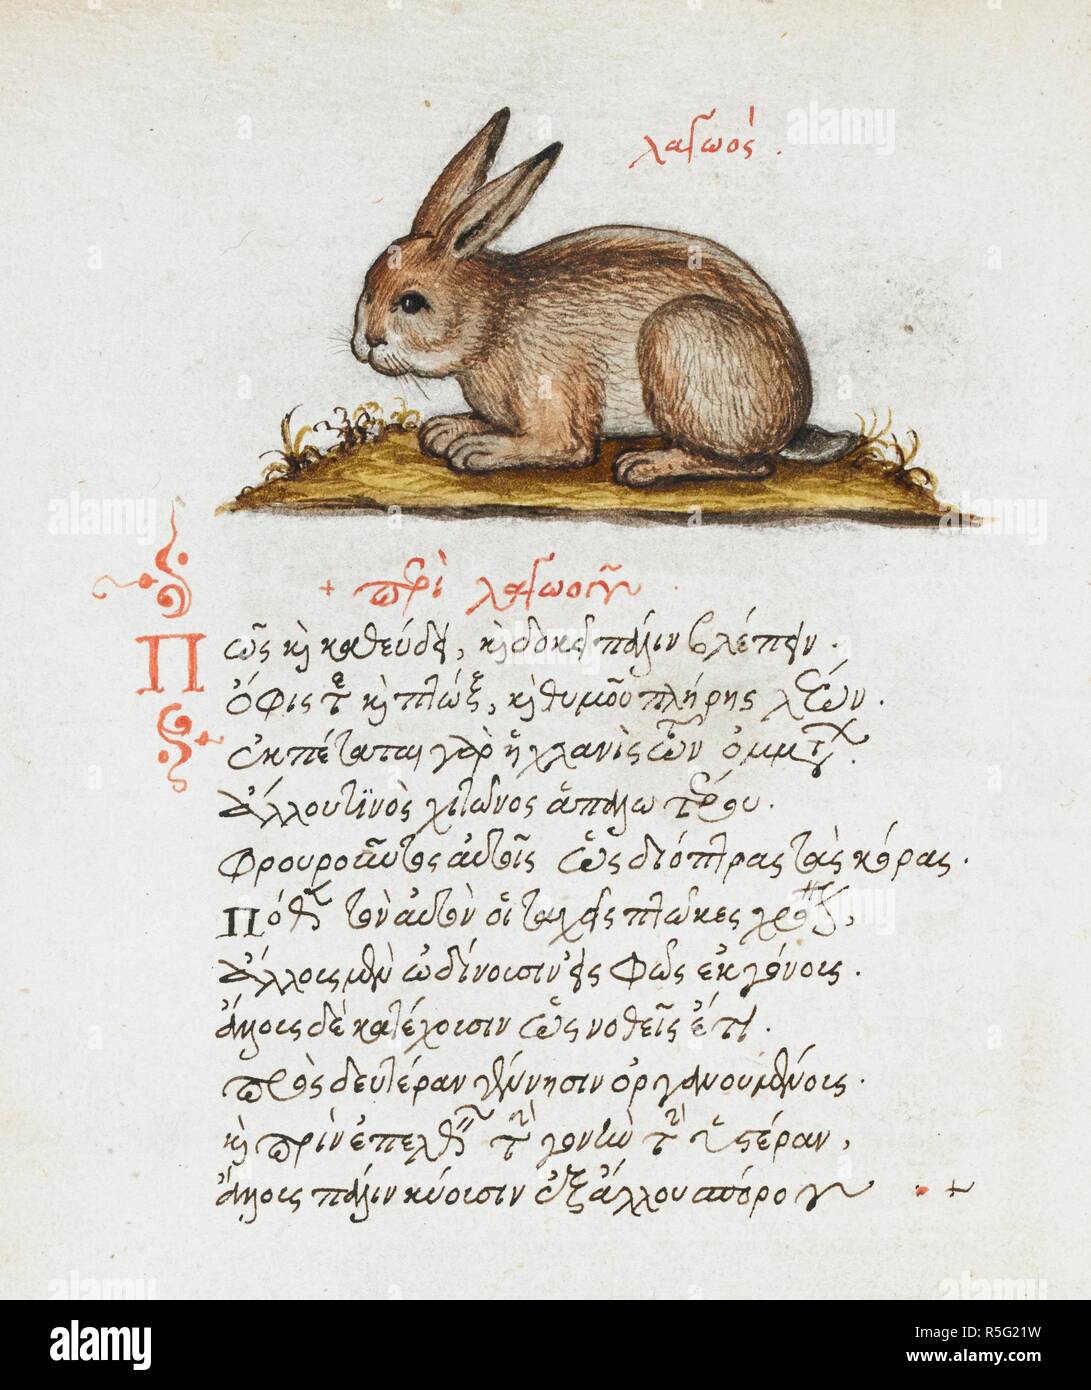 λαγωός.
+ περὶ λαγωοῦ.
Πῶς καὶ καθεύδει, καὶ δοκεῖ πάλιν βλέπειν.
καὶ πλώξ, καὶ θυμοῦ πλήρης λέων.
ἐκπέταται γὰρ ἡ χλανὶς τῶν ὀμμάτων.
Ἄλλου τινὸς χιτῶνος ἁπαλωτέρου.
Φρουροῦντος αὐτοῖς ὡς διόπτρας τὰς κόρας.
Πόθεν τὸν αὐτὸν οἱ ταχεῖς πλῶκες
Ἄλλοις μὲν ὠδίνουσιν εἰς φῶς ἐκγόνοις.
ἄλλοις δὲ κατέχουσιν ὡς νοθεῖς ἔτι.
πρὸς δευτέραν γέννησιν ὀργανουμένοις.
καὶ πρὶν ἐπελθεῖν τὴν γονὴν τὴν ὑστέραν,
ἄλλοις πάλιν κύουσιν ἐξ ἄλλου πόρου. +
alamy
Image ID: R5G21W
www.alamy.com